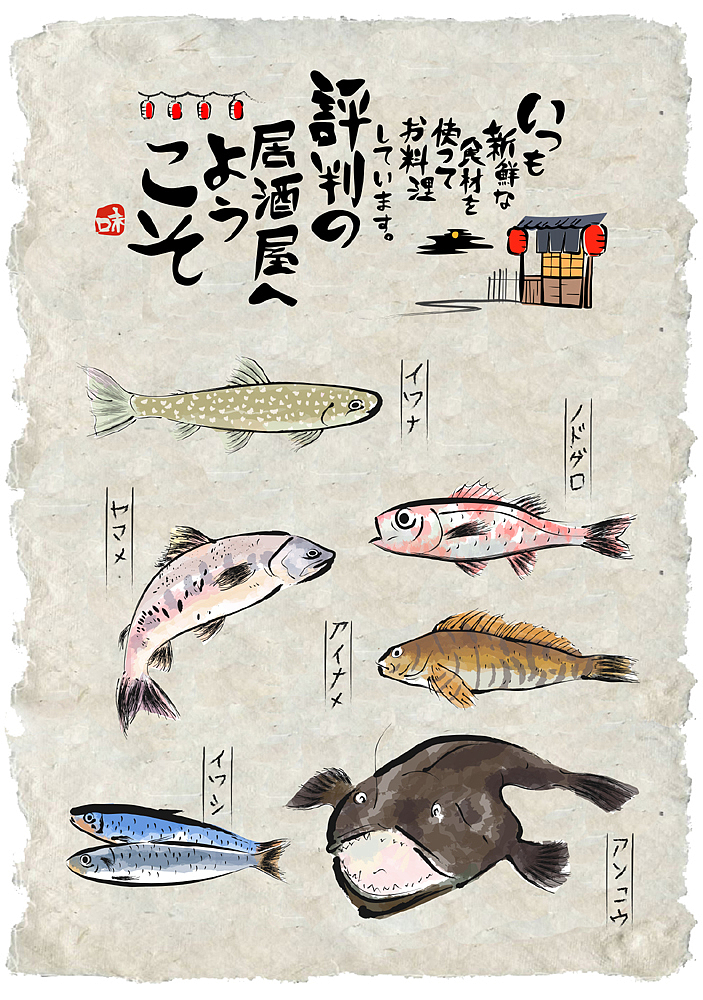 いつも
新鮮な
食材を
使って
お料理
しています。
評判の
居酒屋へ
よう
こそ
味
イワナ
ノドグロ
ヤマメ
アイナメ
イワシ
アンコウ